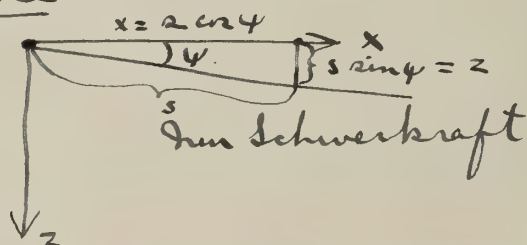 x = s cos ψ
x
ψ.
s sin ψ = z
s
Schwerkraft
z